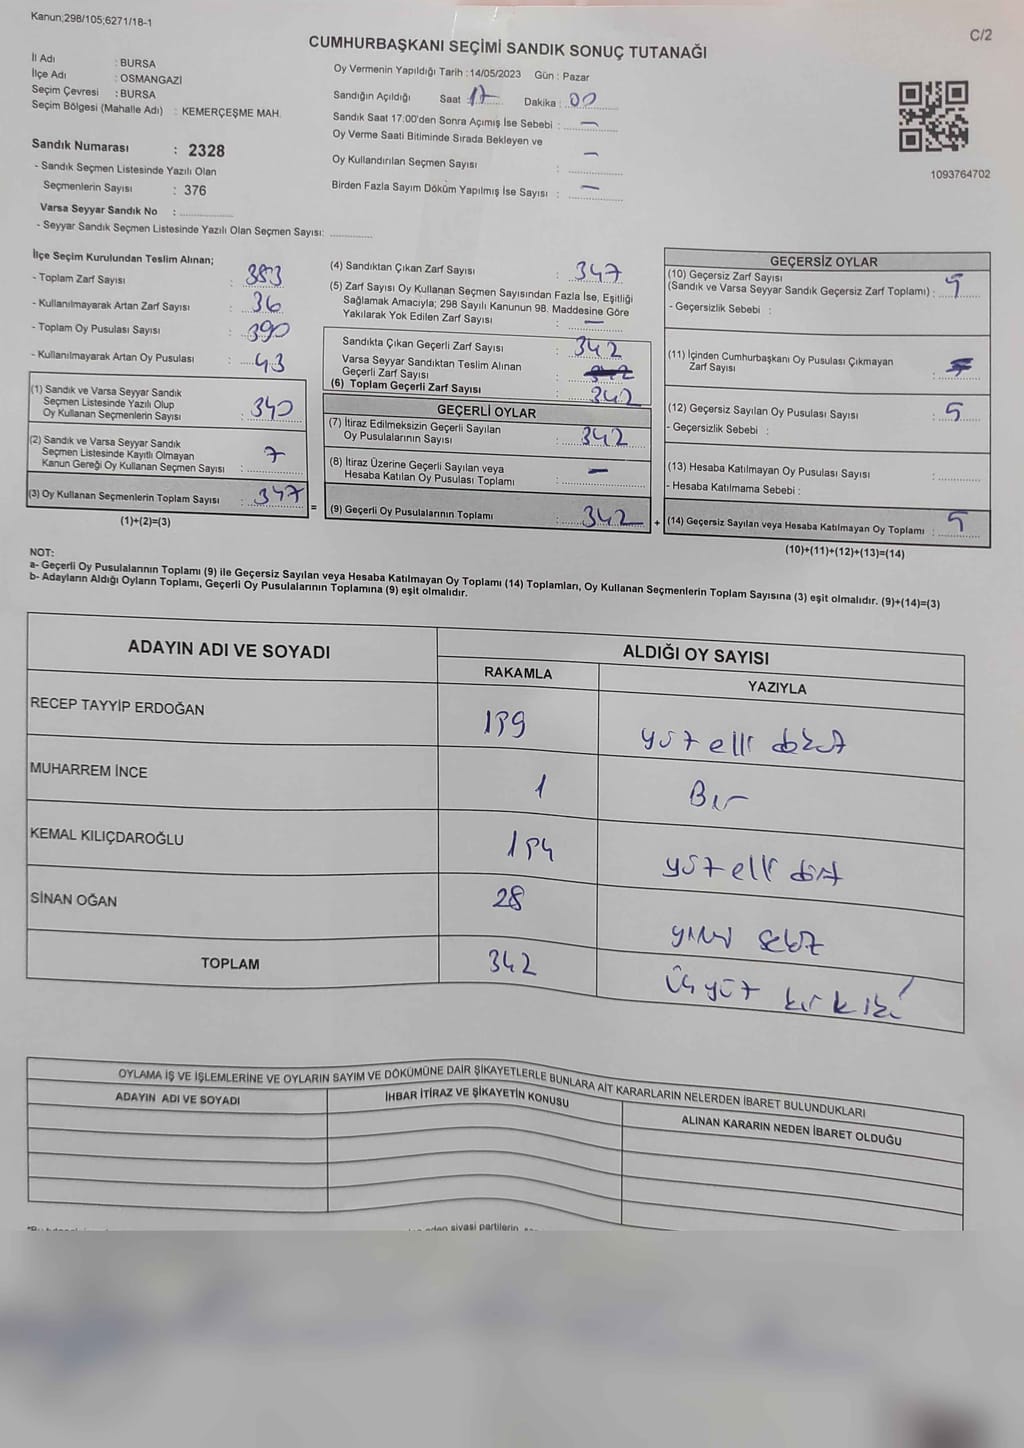 Kanun;298/105;6271/18-1
C/2
CUMHURBAŞKANI SEÇİMİ SANDIK SONUÇ TUTANAĞI
İl Adı : BURSA
İlçe Adı : OSMANGAZİ
Seçim Çevresi : BURSA
Seçim Bölgesi (Mahalle Adı) : KEMERÇEŞME MAH.
Sandık Numarası : 2328
- Sandık Seçmen Listesinde Yazılı Olan
Seçmenlerin Sayısı : 376
Varsa Seyyar Sandık No :
- Seyyar Sandık Seçmen Listesinde Yazılı Olan Seçmen Sayısı:
Oy Vermenin Yapıldığı Tarih :14/05/2023 Gün : Pazar
Sandığın Açıldığı Saat 17 Dakika : 00
Sandık Saat 17:00'den Sonra Açımış İse Sebebi : —
Oy Verme Saati Bitiminde Sırada Bekleyen ve
Oy Kullandırılan Seçmen Sayısı : —
Birden Fazla Sayım Döküm Yapılmış İse Sayısı : —
1093764702
İlçe Seçim Kurulundan Teslim Alınan;
- Toplam Zarf Sayısı : 383
- Kullanılmayarak Artan Zarf Sayısı : 36
- Toplam Oy Pusulası Sayısı : 390
- Kullanılmayarak Artan Oy Pusulası : 43
(1) Sandık ve Varsa Seyyar Sandık
Seçmen Listesinde Yazılı Olup
Oy Kullanan Seçmenlerin Sayısı : 340
(2) Sandık ve Varsa Seyyar Sandık
Seçmen Listesinde Kayıtlı Olmayan
Kanun Gereği Oy Kullanan Seçmen Sayısı : 7
(3) Oy Kullanan Seçmenlerin Toplam Sayısı : 347
(1)+(2)=(3)
=
(4) Sandıktan Çıkan Zarf Sayısı : 347
(5) Zarf Sayısı Oy Kullanan Seçmen Sayısından Fazla İse, Eşitliği
Sağlamak Amacıyla; 298 Sayılı Kanunun 98. Maddesine Göre
Yakılarak Yok Edilen Zarf Sayısı : —
Sandıkta Çıkan Geçerli Zarf Sayısı : 342
Varsa Seyyar Sandıktan Teslim Alınan
Geçerli Zarf Sayısı :
(6) Toplam Geçerli Zarf Sayısı : 342
GEÇERLİ OYLAR
(7) İtiraz Edilmeksizin Geçerli Sayılan
Oy Pusulalarının Sayısı : 342
(8) İtiraz Üzerine Geçerli Sayılan veya
Hesaba Katılan Oy Pusulası Toplamı : —
(9) Geçerli Oy Pusulalarının Toplamı : 342
+
GEÇERSİZ OYLAR
(10) Geçersiz Zarf Sayısı
(Sandık ve Varsa Seyyar Sandık Geçersiz Zarf Toplamı) : 5
- Geçersizlik Sebebi :
(11) İçinden Cumhurbaşkanı Oy Pusulası Çıkmayan
Zarf Sayısı :
(12) Geçersiz Sayılan Oy Pusulası Sayısı : 5
- Geçersizlik Sebebi :
(13) Hesaba Katılmayan Oy Pusulası Sayısı :
- Hesaba Katılmama Sebebi :
(14) Geçersiz Sayılan veya Hesaba Katılmayan Oy Toplamı : 5
(10)+(11)+(12)+(13)=(14)
NOT:
a- Geçerli Oy Pusulalarının Toplamı (9) ile Geçersiz Sayılan veya Hesaba Katılmayan Oy Toplamı (14) Toplamları, Oy Kullanan Seçmenlerin Toplam Sayısına (3) eşit olmalıdır. (9)+(14)=(3)
b- Adayların Aldığı Oyların Toplamı, Geçerli Oy Pusulalarının Toplamına (9) eşit olmalıdır.
ADAYIN ADI VE SOYADI
ALDIĞI OY SAYISI
RAKAMLA YAZIYLA
RECEP TAYYİP ERDOĞAN 159 yüz elli dokuz
MUHARREM İNCE 1 Bir
KEMAL KILIÇDAROĞLU 154 yüz elli dört
SİNAN OĞAN 28 yirmi sekiz
TOPLAM 342 üçyüz kırk iki
OYLAMA İŞ VE İŞLEMLERİNE VE OYLARIN SAYIM VE DÖKÜMÜNE DAİR ŞİKAYETLERLE BUNLARA AİT KARARLARIN NELERDEN İBARET BULUNDUKLARI
ADAYIN ADI VE SOYADI
İHBAR İTİRAZ VE ŞİKAYETİN KONUSU
ALINAN KARARIN NEDEN İBARET OLDUĞU
siyasi partilerin